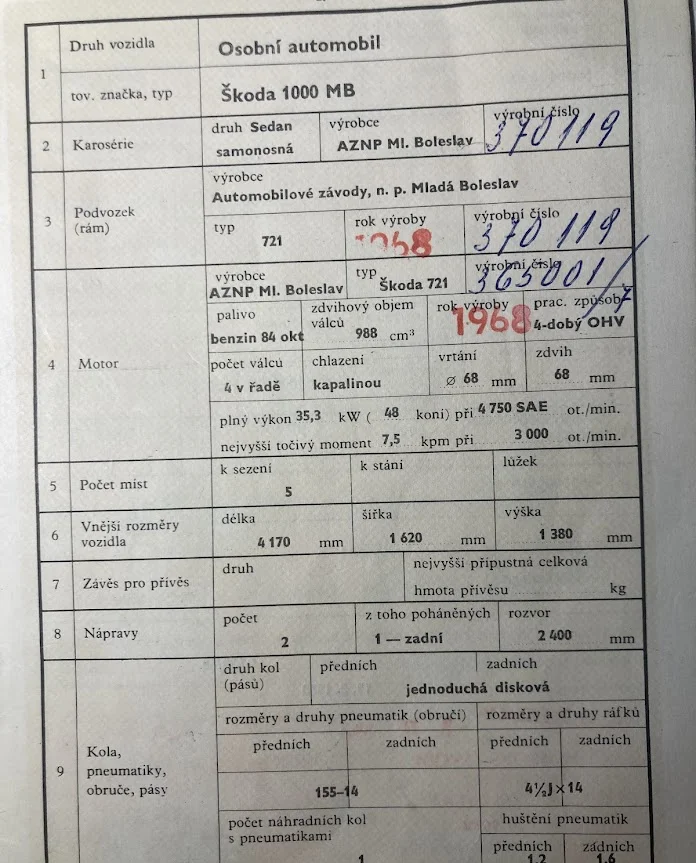 1 Druh vozidla Osobní automobil
tov. značka, typ Škoda 1000 MB
2 Karosérie druh Sedan samonosná výrobce AZNP Ml. Boleslav výrobní číslo 370119
3 Podvozek (rám) výrobce
Automobilové závody, n. p. Mladá Boleslav
typ 721 rok výroby 1968 výrobní číslo 370 119
4 Motor
výrobce AZNP Ml. Boleslav typ Škoda 721 výrobní číslo 365001/7
palivo benzin 84 okt zdvihový objem válců 988 cm³ rok výroby 1968 prac. způsob 4-dobý OHV
počet válců 4 v řadě chlazení kapalinou vrtání ⌀ 68 mm zdvih 68 mm
plný výkon 35,3 kW ( 48 koní) při 4 750 SAE ot./min.
nejvyšší točivý moment 7,5 kpm při 3 000 ot./min.
5 Počet míst k sezení 5 k stání lůžek
6 Vnější rozměry vozidla délka 4 170 mm šířka 1 620 mm výška 1 380 mm
7 Závěs pro přívěs druh nejvyšší přípustná celková
hmota přívěsu kg
8 Nápravy počet 2 z toho poháněných 1 — zadní rozvor 2 400 mm
9 Kola, pneumatiky, obruče, pásy
druh kol (pásů) předních zadních
jednoduchá disková
rozměry a druhy pneumatik (obručí) rozměry a druhy ráfků
předních zadních předních zadních
155–14 4½J×14
počet náhradních kol huštění pneumatik
s pneumatikami předních zadních
1 1,2 1,6